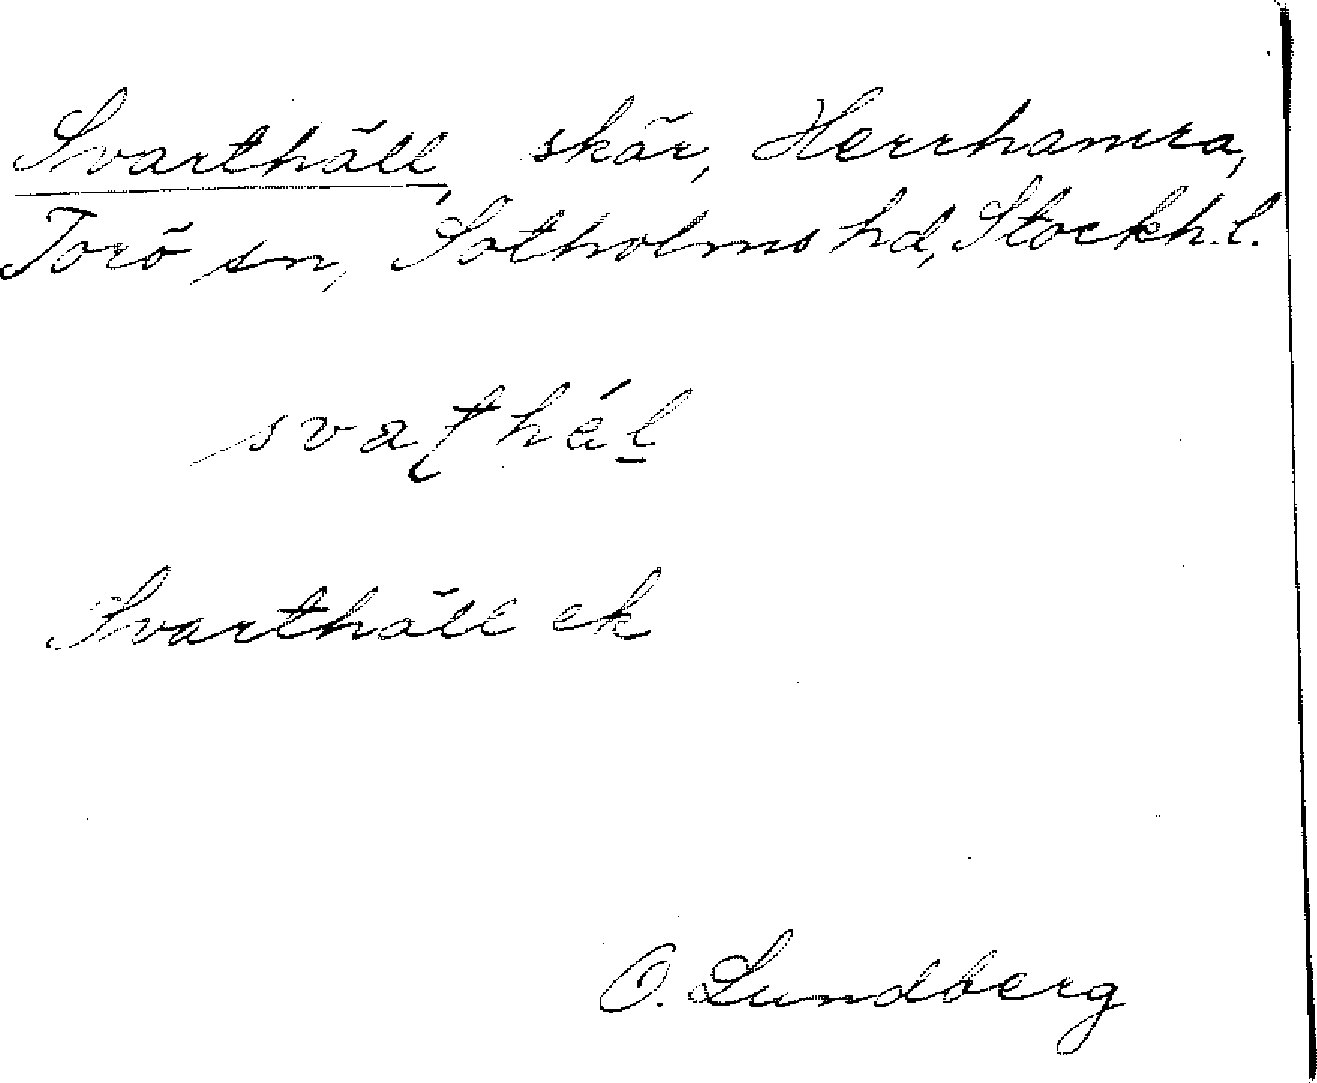 Svarthäll, skär, Herrhamra,
Torö sn, Sotholms hd, Stockh. l.
svaʈhál̲
Svarthäll ek
O. Lundberg